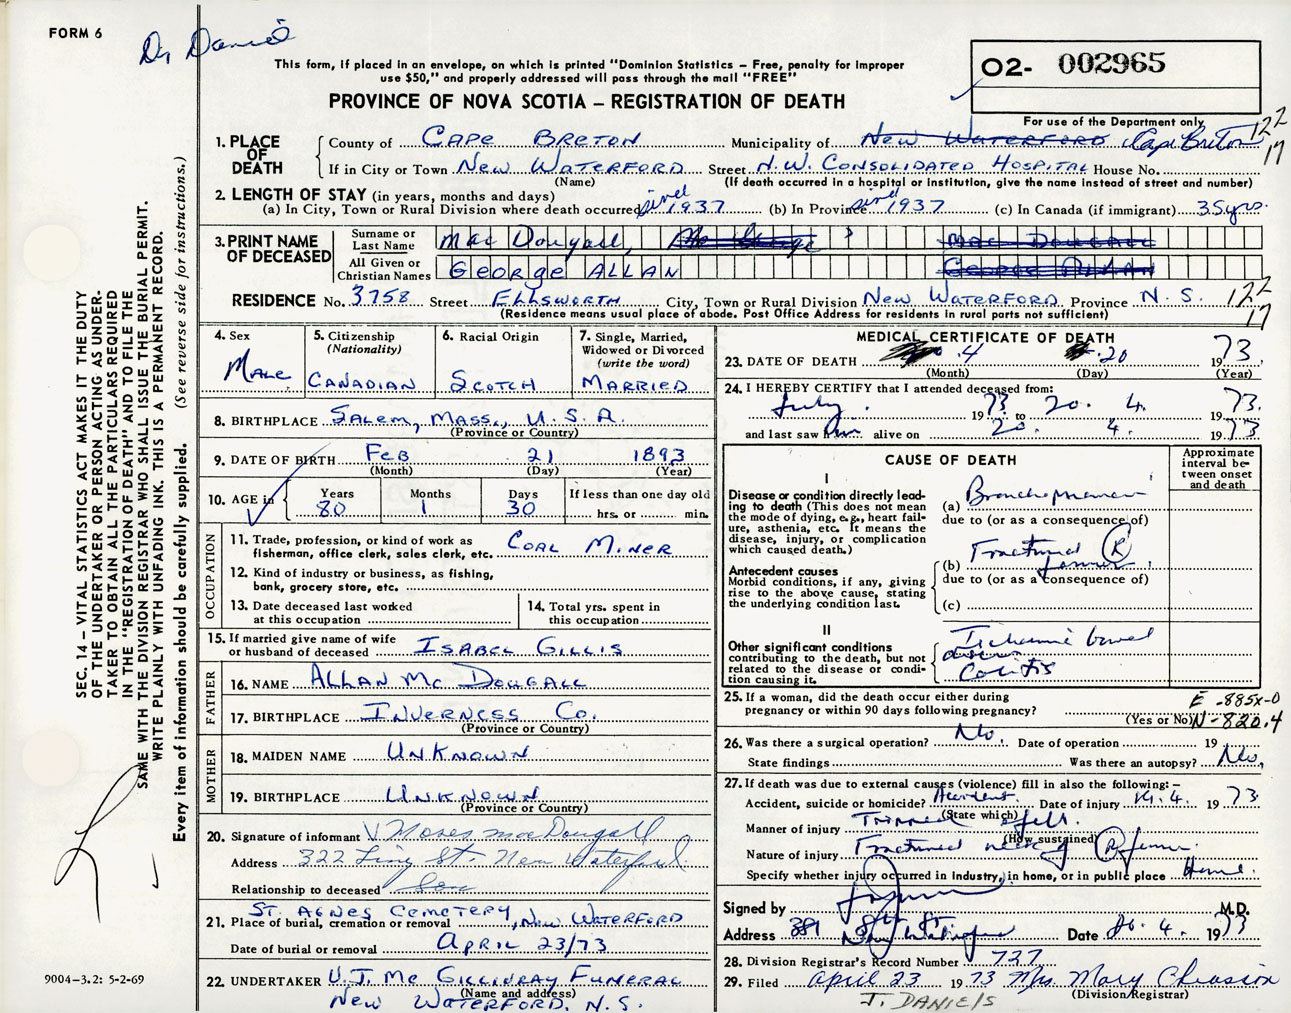 FORM 6
Dr Daniel
This form, if placed in an envelope, on which is printed "Dominion Statistics – Free, penalty for improper
use $50," and properly addressed will pass through the mail "FREE"
PROVINCE OF NOVA SCOTIA – REGISTRATION OF DEATH
O2- 002965
For use of the Department only
122
17
1. PLACE OF DEATH
County of CAPE BRETON Municipality of NEW WATERFORD Cape Breton
If in City or Town NEW WATERFORD Street N.W. CONSOLIDATED HOSPITAL House No.
(Name) (If death occurred in a hospital or institution, give the name instead of street and number)
2. LENGTH OF STAY (in years, months and days)
(a) In City, Town or Rural Division where death occurred since 1937 (b) In Province since 1937 (c) In Canada (if immigrant) 35 yrs.
3. PRINT NAME OF DECEASED
Surname or Last Name Mac Dougall, MAC DOUGALL
All Given or Christian Names GEORGE ALLAN GEORGE ALLAN
RESIDENCE No. 3758 Street ELLSWORTH City, Town or Rural Division NEW WATERFORD Province N.S. 122
17
(Residence means usual place of abode. Post Office Address for residents in rural parts not sufficient)
4. Sex MALE
5. Citizenship (Nationality) CANADIAN
6. Racial Origin SCOTCH
7. Single, Married, Widowed or Divorced (write the word) MARRIED
8. BIRTHPLACE SALEM, MASS., U.S.A.
(Province or Country)
9. DATE OF BIRTH FEB 21 1893
(Month) (Day) (Year)
10. AGE in Years 80 Months 1 Days 30 If less than one day old
hrs. or min.
OCCUPATION
11. Trade, profession, or kind of work as fisherman, office clerk, sales clerk, etc. COAL MINER
12. Kind of industry or business, as fishing, bank, grocery store, etc.
13. Date deceased last worked at this occupation
14. Total yrs. spent in this occupation
15. If married give name of wife or husband of deceased ISABEL GILLIS
FATHER
16. NAME ALLAN Mc DOUGALL
17. BIRTHPLACE INVERNESS CO.
(Province or Country)
MOTHER
18. MAIDEN NAME UNKNOWN
19. BIRTHPLACE UNKNOWN
(Province or Country)
20. Signature of informant Moses MacDougall
Address 322 Ling St. New Waterford
Relationship to deceased Son
21. Place of burial, cremation or removal ST. AGNES CEMETERY, NEW WATERFORD
Date of burial or removal APRIL 23/73
22. UNDERTAKER V.J. Mc GILLIVRAY FUNERAL
(Name and address)
NEW WATERFORD, N.S.
MEDICAL CERTIFICATE OF DEATH
23. DATE OF DEATH 4 20 1973
(Month) (Day) (Year)
24. I HEREBY CERTIFY that I attended deceased from:
July 1973 to 20. 4. 1973.
and last saw him alive on 20. 4. 1973
CAUSE OF DEATH
Approximate interval between onset and death
I
Disease or condition directly leading to death (This does not mean the mode of dying, e.g., heart failure, asthenia, etc. It means the disease, injury, or complication which caused death.)
(a) Bronchopneumonia
due to (or as a consequence of)
Antecedent causes
Morbid conditions, if any, giving rise to the above cause, stating the underlying condition last.
(b) Fractured (R) femur.
due to (or as a consequence of)
(c)
II
Other significant conditions contributing to the death, but not related to the disease or condition causing it.
Ischaemic bowel
disease
Colitis
25. If a woman, did the death occur either during pregnancy or within 90 days following pregnancy?
(Yes or No)
E-885X-0
N-820.4
26. Was there a surgical operation? No. Date of operation 19
State findings Was there an autopsy? No,
27. If death was due to external causes (violence) fill in also the following:–
Accident, suicide or homicide? Accident. Date of injury 14.4. 1973
(State which)
Manner of injury Tripped & fell.
(How sustained)
Nature of injury Fractured neck of (R) femur.
Specify whether injury occurred in industry, in home, or in public place Home.
Signed by M.D.
Address 389 8th St
New Waterford Date 20. 4. 1973
28. Division Registrar's Record Number 727
29. Filed April 23 1973 Mrs. Mary Chiasson
(Division Registrar)
J. DANIELS
SEC. 14 – VITAL STATISTICS ACT MAKES IT THE DUTY
OF THE UNDERTAKER OR PERSON ACTING AS UNDERTAKER TO OBTAIN ALL THE PARTICULARS REQUIRED
IN THE "REGISTRATION OF DEATH" AND TO FILE THE
SAME WITH THE DIVISION REGISTRAR WHO SHALL ISSUE THE BURIAL PERMIT.
WRITE PLAINLY WITH UNFADING INK. THIS IS A PERMANENT RECORD.
Every item of Information should be carefully supplied. (See reverse side for instructions.)
9004-3.2: 5-2-69